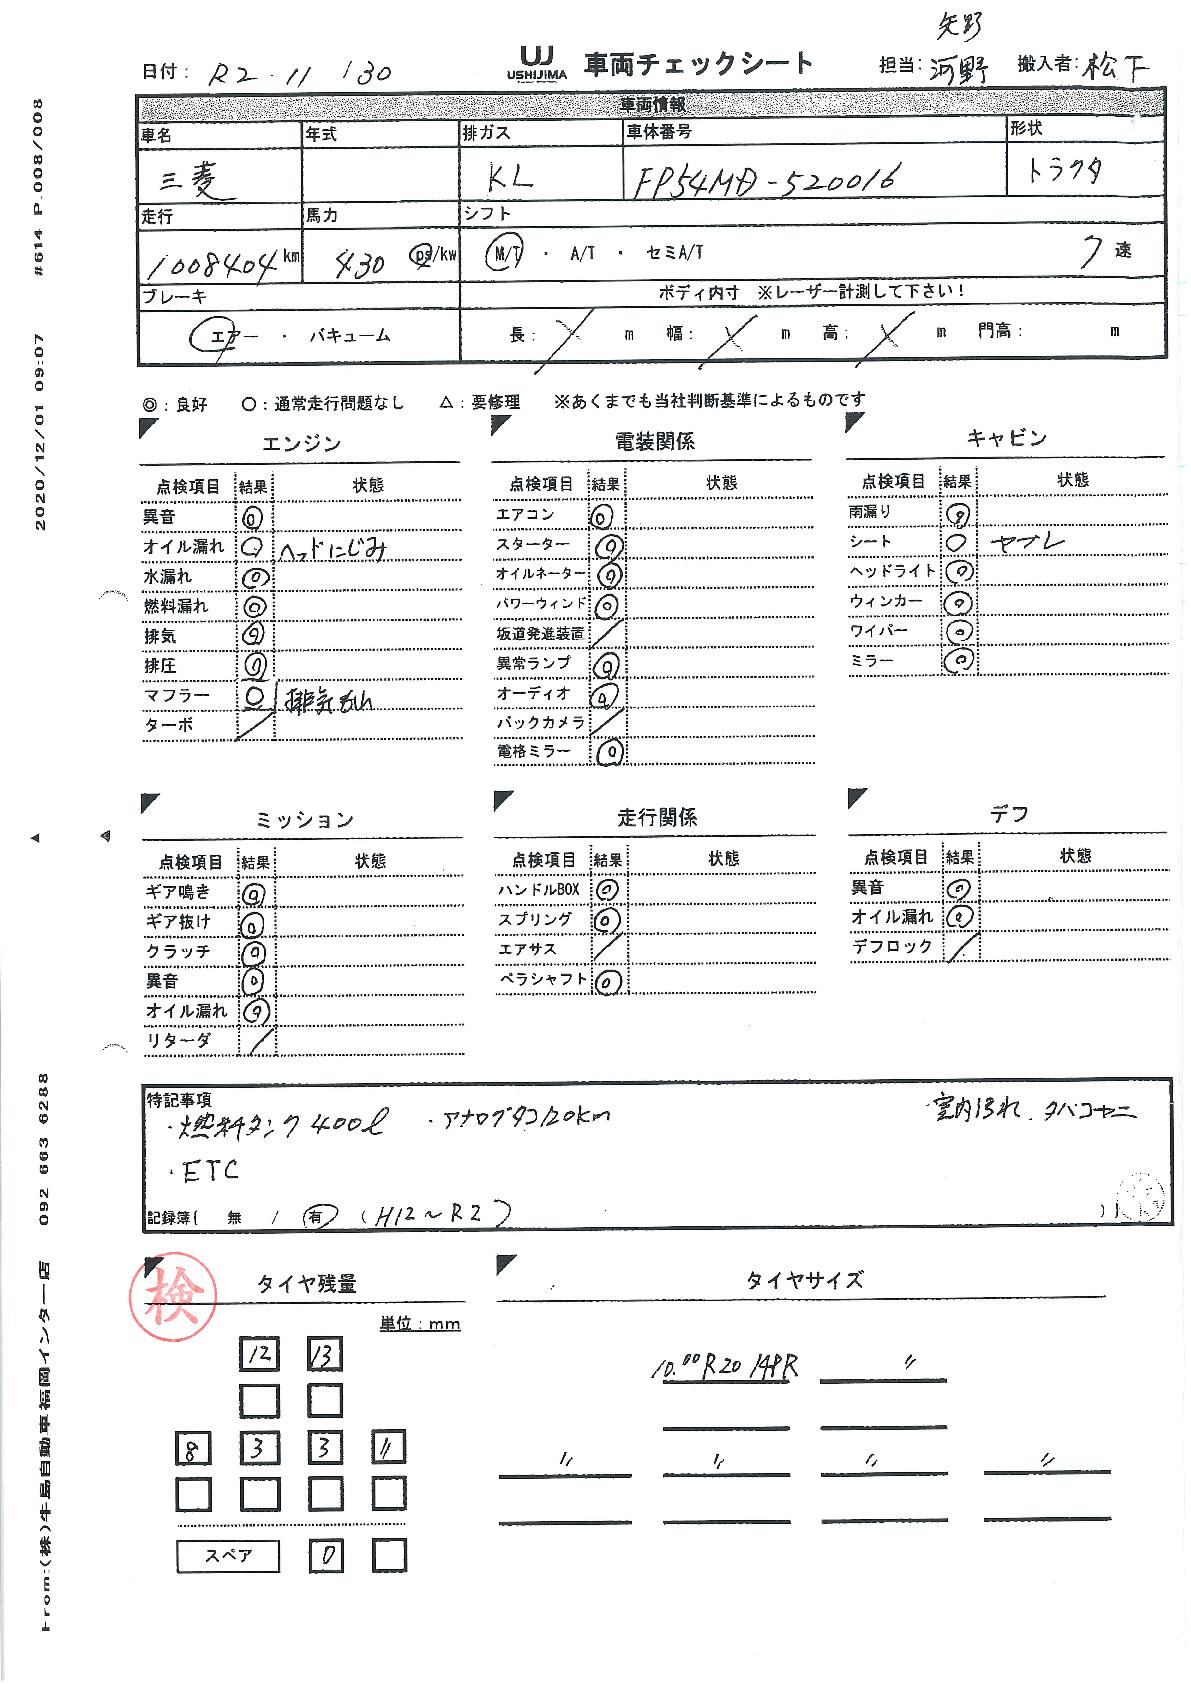 矢野
日付： R2・11・30 USHIJIMA 車両チェックシート 担当： 河野 搬入者： 松下
車両情報
車名 年式 排ガス 車体番号 形状
三菱 KL FP54MD-520016 トラクタ
走行 馬力 シフト
1008404 km 430 ps/kw M/T ・ A/T ・ セミA/T 7 速
ブレーキ ボディ内寸 ※レーザー計測して下さい！
エアー ・ バキューム 長： m 幅： m 高： m 門高： m
◎：良好 〇：通常走行問題なし △：要修理 ※あくまでも当社判断基準によるものです
エンジン
点検項目 結果 状態
異音 ◎
オイル漏れ 〇 ヘッドにじみ
水漏れ ◎
燃料漏れ ◎
排気 ◎
排圧 ◎
マフラー 〇 排気もれ
ターボ ／
電装関係
点検項目 結果 状態
エアコン ◎
スターター ◎
オイルネーター ◎
パワーウィンド ◎
坂道発進装置 ／
異常ランプ ◎
オーディオ ◎
バックカメラ ／
電格ミラー ◎
キャビン
点検項目 結果 状態
雨漏り ◎
シート 〇 ヤブレ
ヘッドライト ◎
ウィンカー ◎
ワイパー ◎
ミラー ◎
ミッション
点検項目 結果 状態
ギア鳴き ◎
ギア抜け ◎
クラッチ ◎
異音 ◎
オイル漏れ ◎
リターダ ／
走行関係
点検項目 結果 状態
ハンドルBOX ◎
スプリング ◎
エアサス ／
ペラシャフト ◎
デフ
点検項目 結果 状態
異音 ◎
オイル漏れ ◎
デフロック ／
特記事項
・燃料タンク400ℓ ・アナログタコ120km ・室内汚れ、タバコヤニ
・ETC
記録簿( 無 / 有 (H12～R2) )
検
タイヤ残量
単位：mm
12 13
8 3 3 11
スペア 0
タイヤサイズ
10.00R20 14PR 〃
〃 〃 〃 〃
2020/12/01 09:07 #614 P.008/008
From:(株)牛島自動車福岡インター店 092 663 6288